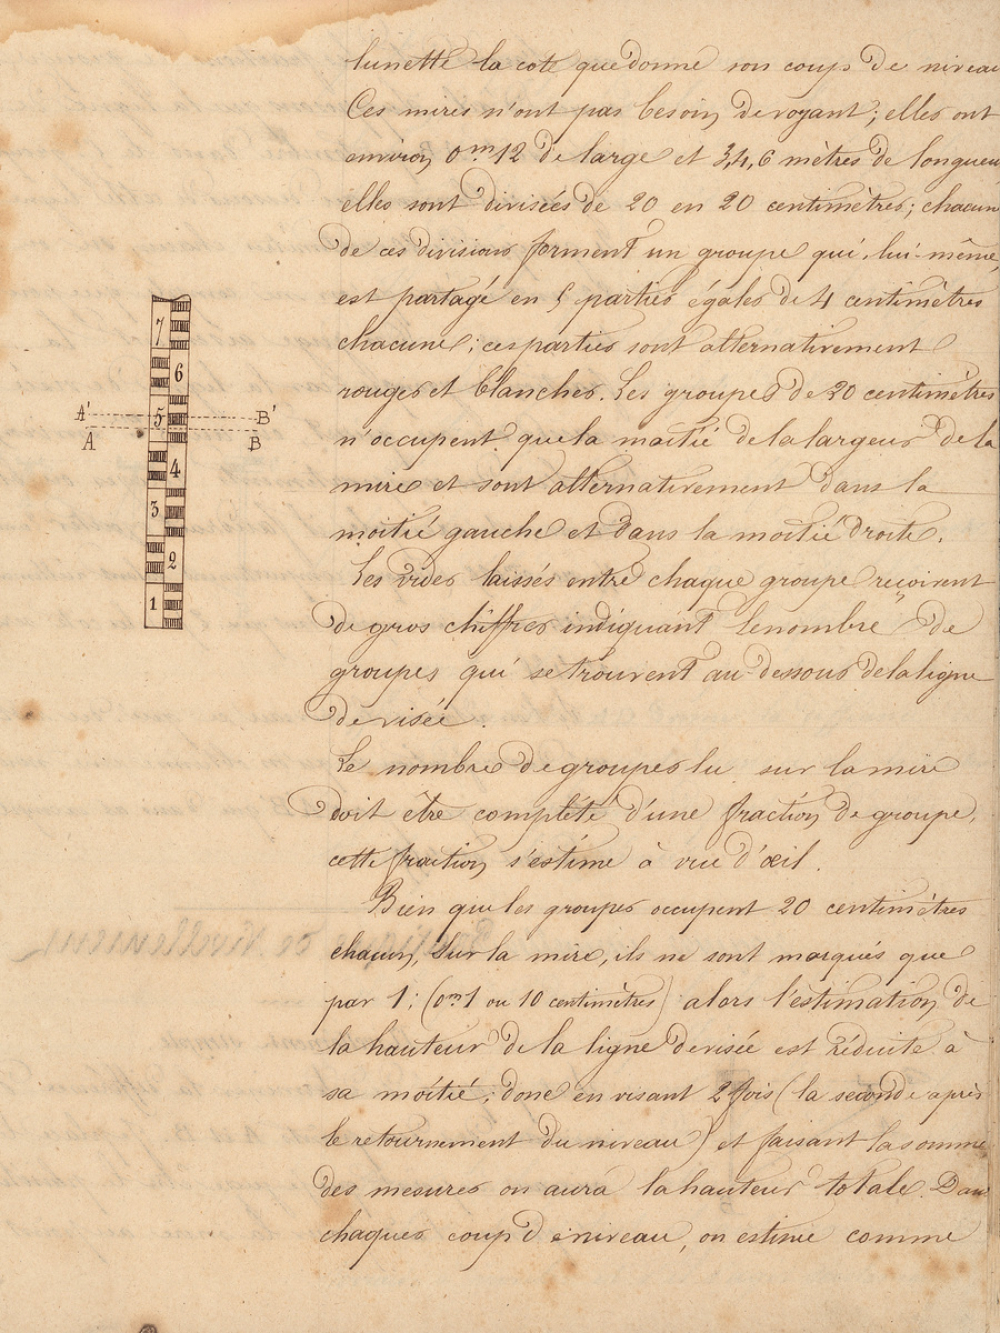 lunette la cote que donne son coup de niveau
Ces mires n'ont pas besoin de voyant; elles ont
environ 0m 12 de large et 3, 4, 6 mètres de longueu
elles sont divisées de 20 en 20 centimètres; chacun
de ces divisions forment un groupe qui, lui-même,
est partagé en 5 parties égales de 4 centimètres
chacune; ces parties sont alternativement
rouges et blanches. Les groupes de 20 centimètres
n'occupent que la moitié de la largeur de la
mire et sont alternativement dans la
moitié gauche et dans la moitié droite.
Les vides laissés entre chaque groupe reçoivent
de gros chiffres indiquant le nombre de
groupes qui se trouvent au-dessous de la ligne
de visée.
Le nombre de groupes lu sur la mire
doit être complété d'une fraction de groupe,
cette fraction s'estime à vue d'œil.
Bien que les groupes occupent 20 centimètres
chacun, sur la mire, ils ne sont marqués que
par 1; (0m 1 ou 10 centimètres) alors l'estimation de
la hauteur de la ligne de visée est réduite à
sa moitié; donc en visant 2 fois (la seconde après
le retournement du niveau) et faisant la somme
des mesures on aura la hauteur totale. Dans
chaques coup de niveau, on estime comme
7
6
A' 5 B'
A B
4
3
2
1